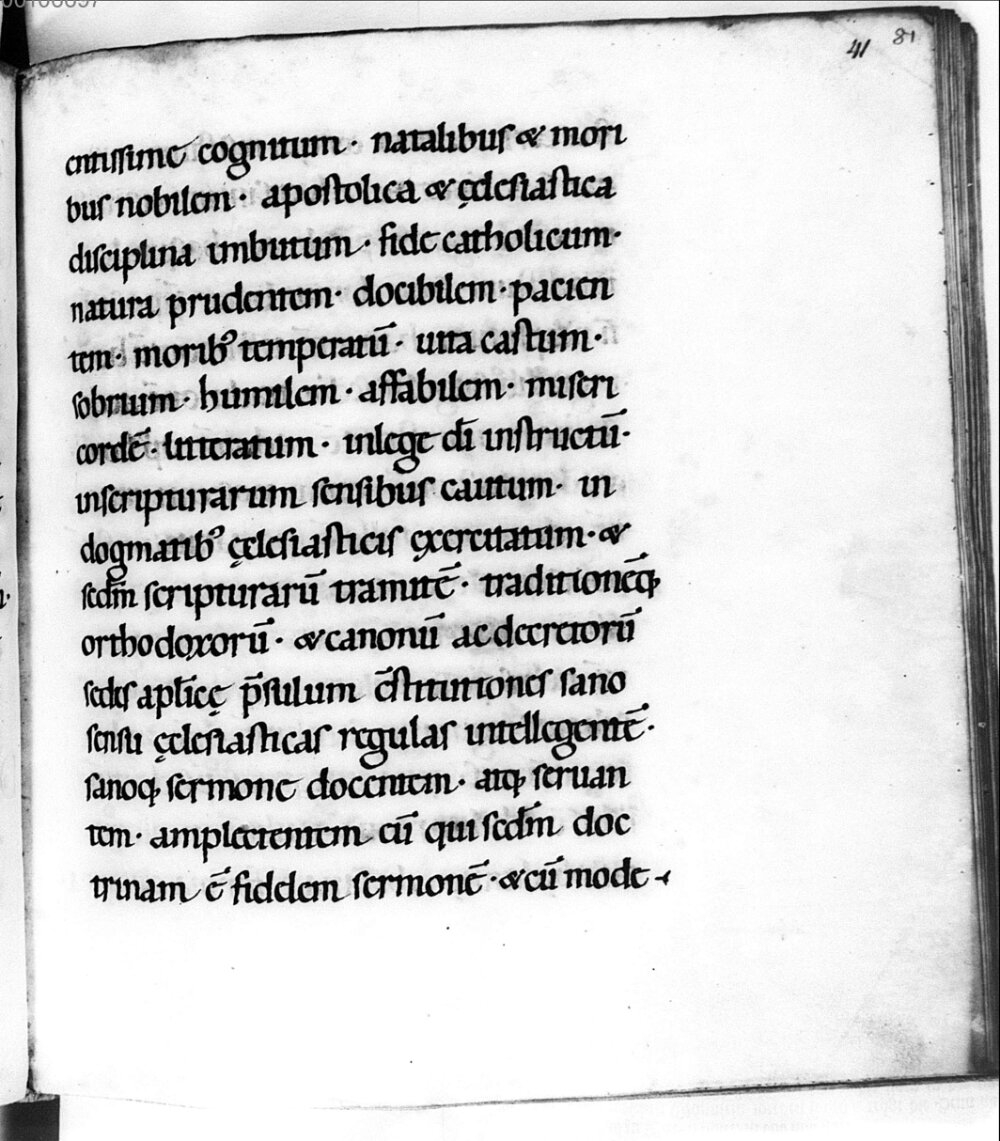 41 81
entissime cognitum · natalibus & mori
bus nobilem · apostolica & ęclesiastica
disciplina imbutum · fide catholicum ·
natura prudentem · docibilem · pacien
tem · moribꝰ temperatū · uita castum ·
sobrium · humilem · affabilem · miseri
cordē · litteratum · inlege dī instructū ·
inscripturarum sensibus cautum · in
dogmatibꝰ ęclesiasticis ęxercitatum · &
scdm̄ scripturarū tramitē · traditionēq;
orthodoxorū · & canonū ac decretorū
sedis aplīcę p̄sulum c̄stitutiones sano
sensu ęclesiasticas regulas intellegentē ·
sanoq; sermone docentem · atq; seruan
tem · amplectentem eū qui scdm̄ doc
trinam ē fidelem sermonē · & cū mode